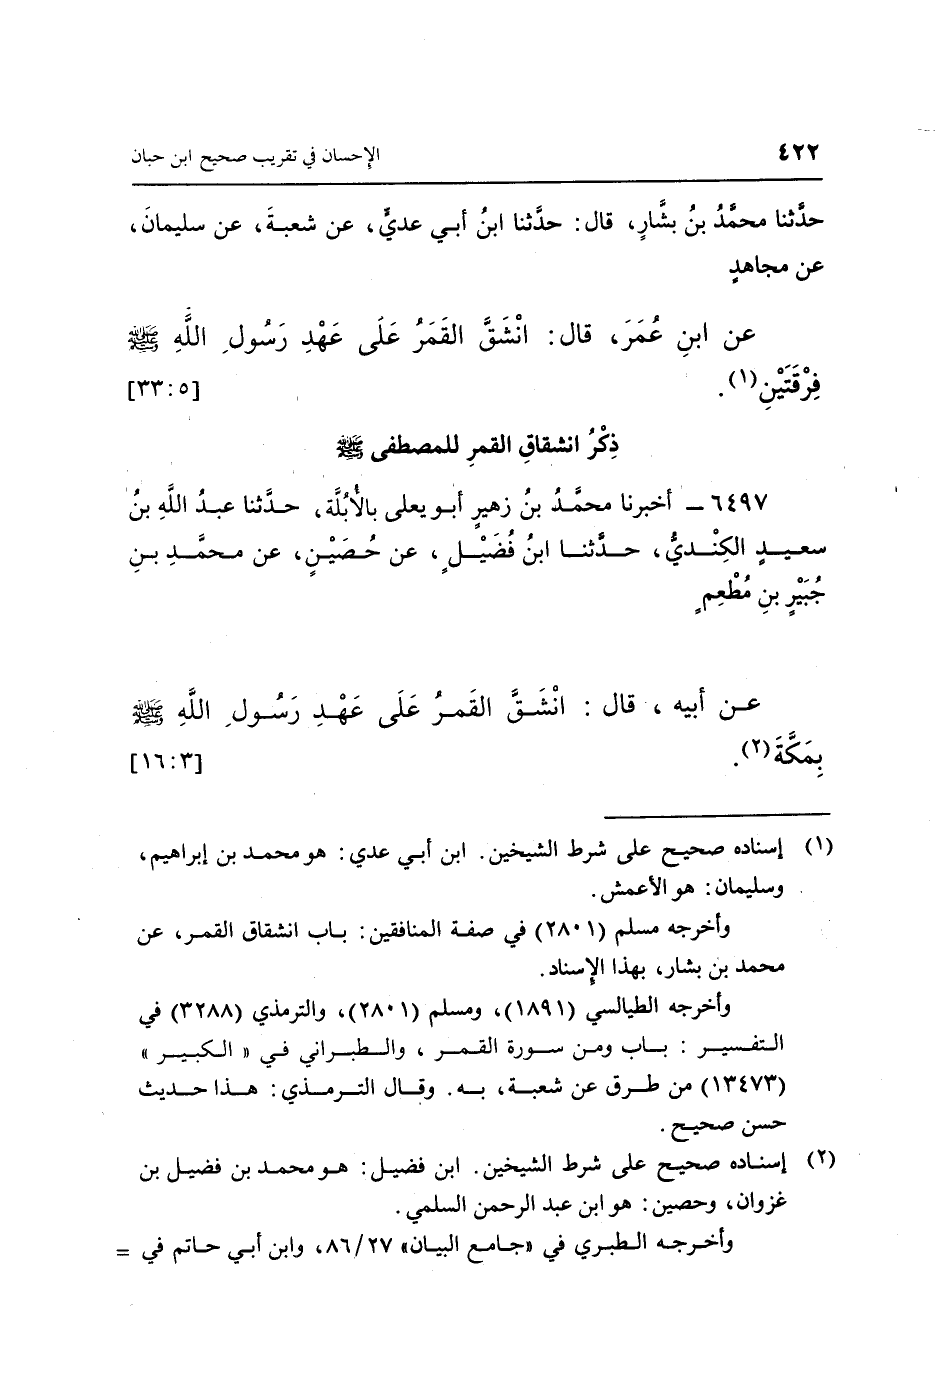 ٤٢٢ الإحسان في تقريب صحيح ابن حبان
حدَّثنا محمَّدُ بنُ بشَّارٍ، قال: حدَّثنا ابنُ أبي عديٍّ، عن شعبةَ، عن سليمانَ،
عن مجاهدٍ
عن ابنِ عُمَرَ، قال: انْشَقَّ القَمَرُ عَلَى عَهْدِ رَسُولِ اللَّهِ ﷺ
فِرْقَتَيْنِ(١). [٣٣:٥]
ذِكْرُ انشقاقِ القمرِ للمصطفى ﷺ
٦٤٩٧ ـ أخبرنا محمَّدُ بنُ زهيرٍ أبو يعلى بالأُبُلَّة، حدَّثنا عبدُ اللَّهِ بنُ
سعيدٍ الكِنْديُّ، حدَّثنا ابنُ فُضَيْلٍ، عن حُصَيْنٍ، عن محمَّدِ بنِ
جُبَيْرِ بنِ مُطْعِمٍ
عن أبيه، قال: انْشَقَّ القَمرُ عَلَى عَهْدِ رَسُولِ اللَّهِ ﷺ
بِمَكَّةَ(٢). [١٦:٣]
(١) إسناده صحيح على شرط الشيخين. ابن أبي عدي: هو محمد بن إبراهيم،
وسليمان: هو الأعمش.
وأخرجه مسلم (٢٨٠١) في صفة المنافقين: باب انشقاق القمر، عن
محمد بن بشار، بهذا الإسناد.
وأخرجه الطيالسي (١٨٩١)، ومسلم (٢٨٠١)، والترمذي (٣٢٨٨) في
التفسير: باب ومن سورة القمر، والطبراني في «الكبير»
(١٣٤٧٣) من طرق عن شعبة، به. وقال الترمذي: هذا حديث
حسن صحيح.
(٢) إسناده صحيح على شرط الشيخين. ابن فضيل: هو محمد بن فضيل بن
غزوان، وحصين: هو ابن عبد الرحمن السلمي.
وأخرجه الطبري في «جامع البيان» ٨٦/٢٧، وابن أبي حاتم في =